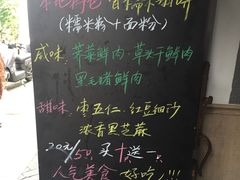 (糯米粉+面粉)
咸味: 荠菜鲜肉、草头干鲜肉
黑毛猪鲜肉
甜味: 枣五仁、红豆细沙
浓香黑芝麻
20元/5只 买十送一
人气美食 好吃!!!